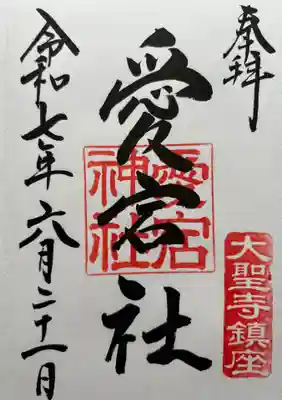 奉拝
愛宕社
愛宕神社
大聖寺鎮座
令和七年六月二十一日